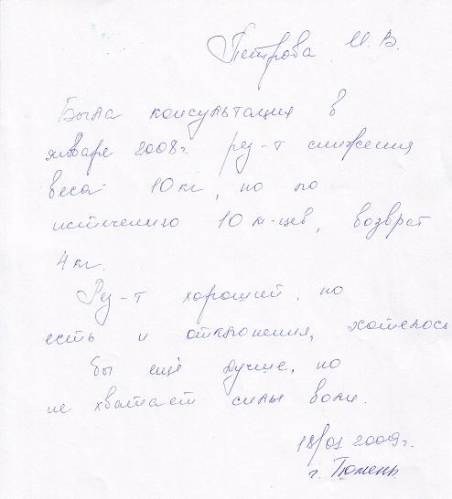 Петрова И. В.
Была консультация в
январе 2008г рез-т снижения
веса 10 кг, но по
истечению 10 м-цев, возврат
4 кг.
Рез-т хороший, но
есть и отклонения, хотелось
бы ещё лучше, но
не хватает силы воли.
18/01 2009г.
г. Тюмень